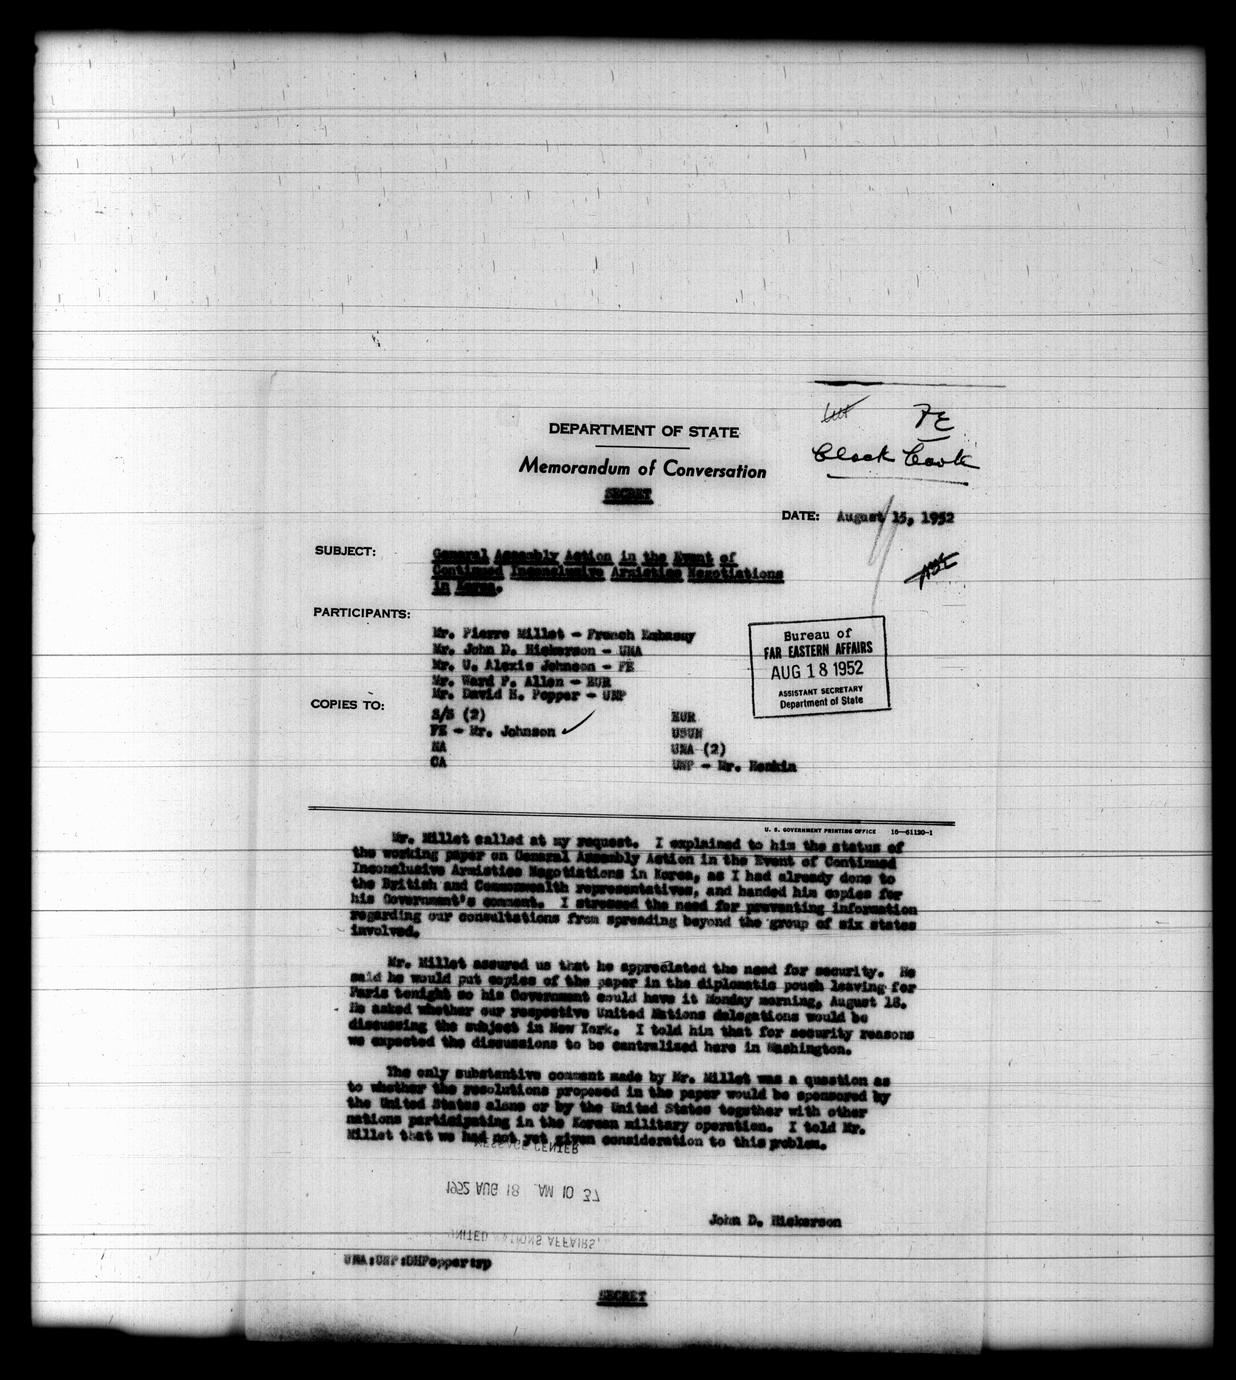 FE
DEPARTMENT OF STATE
Memorandum of Conversation
SECRET
DATE: August 15, 1952
SUBJECT: General Assembly Action in the Event of
Continued Inconclusive Armistice Negotiations
in Korea.
PARTICIPANTS:
Mr. Pierre Millet - French Embassy
Mr. John D. Hickerson - UNA
Mr. U. Alexis Johnson - FE
Mr. Ward P. Allen - EUR
Mr. David H. Popper - UNP
Bureau of
FAR EASTERN AFFAIRS
AUG 18 1952
ASSISTANT SECRETARY
Department of State
COPIES TO:
S/S (2) EUR
FE - Mr. Johnson USUN
NA UNA (2)
CA UNP - Mr. Henkin
U. S. GOVERNMENT PRINTING OFFICE 16—61120-1
Mr. Millet called at my request. I explained to him the status of
the working paper on General Assembly Action in the Event of Continued
Inconclusive Armistice Negotiations in Korea, as I had already done to
the British and Commonwealth representatives, and handed him copies for
his Government's comment. I stressed the need for preventing information
regarding our consultations from spreading beyond the group of six states
involved.
Mr. Millet assured us that he appreciated the need for security. He
said he would put copies of the paper in the diplomatic pouch leaving for
Paris tonight so his Government could have it Monday morning, August 18.
He asked whether our respective United Nations delegations would be
discussing the subject in New York. I told him that for security reasons
we expected the discussions to be centralized here in Washington.
The only substantive comment made by Mr. Millet was a question as
to whether the resolutions proposed in the paper would be sponsored by
the United States alone or by the United States together with other
nations participating in the Korean military operation. I told Mr.
Millet that we had not yet given consideration to this problem.
MESSAGE CENTER
1952 AUG 18 AM 10 37
John D. Hickerson
UNITED NATIONS AFFAIRS
UNA:UNP:DHPopper:sp
SECRET